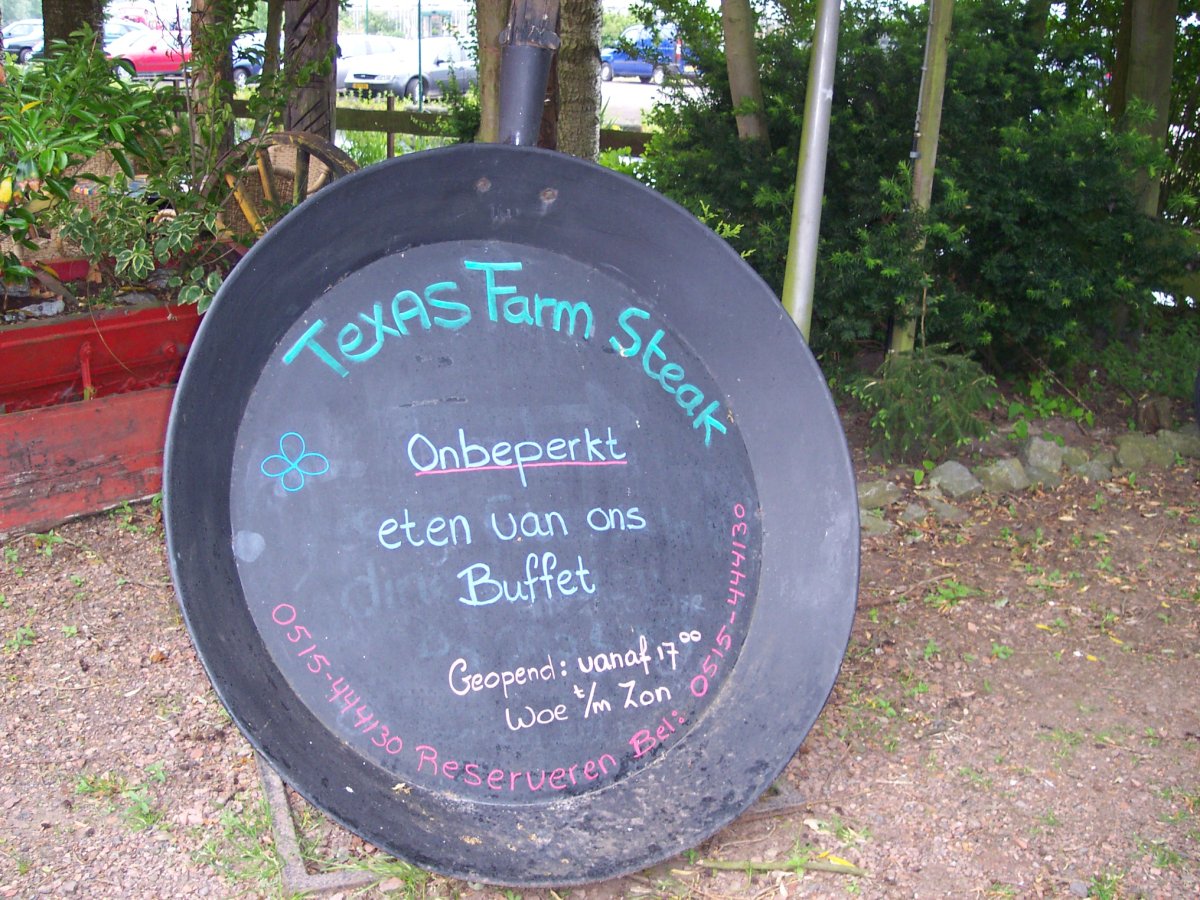 Texas Farm Steak
Onbeperkt
eten van ons
Buffet
Geopend: vanaf 17⁰⁰
Woe t/m Zon
0515-444130 Reserveren Bel: 0515-444130